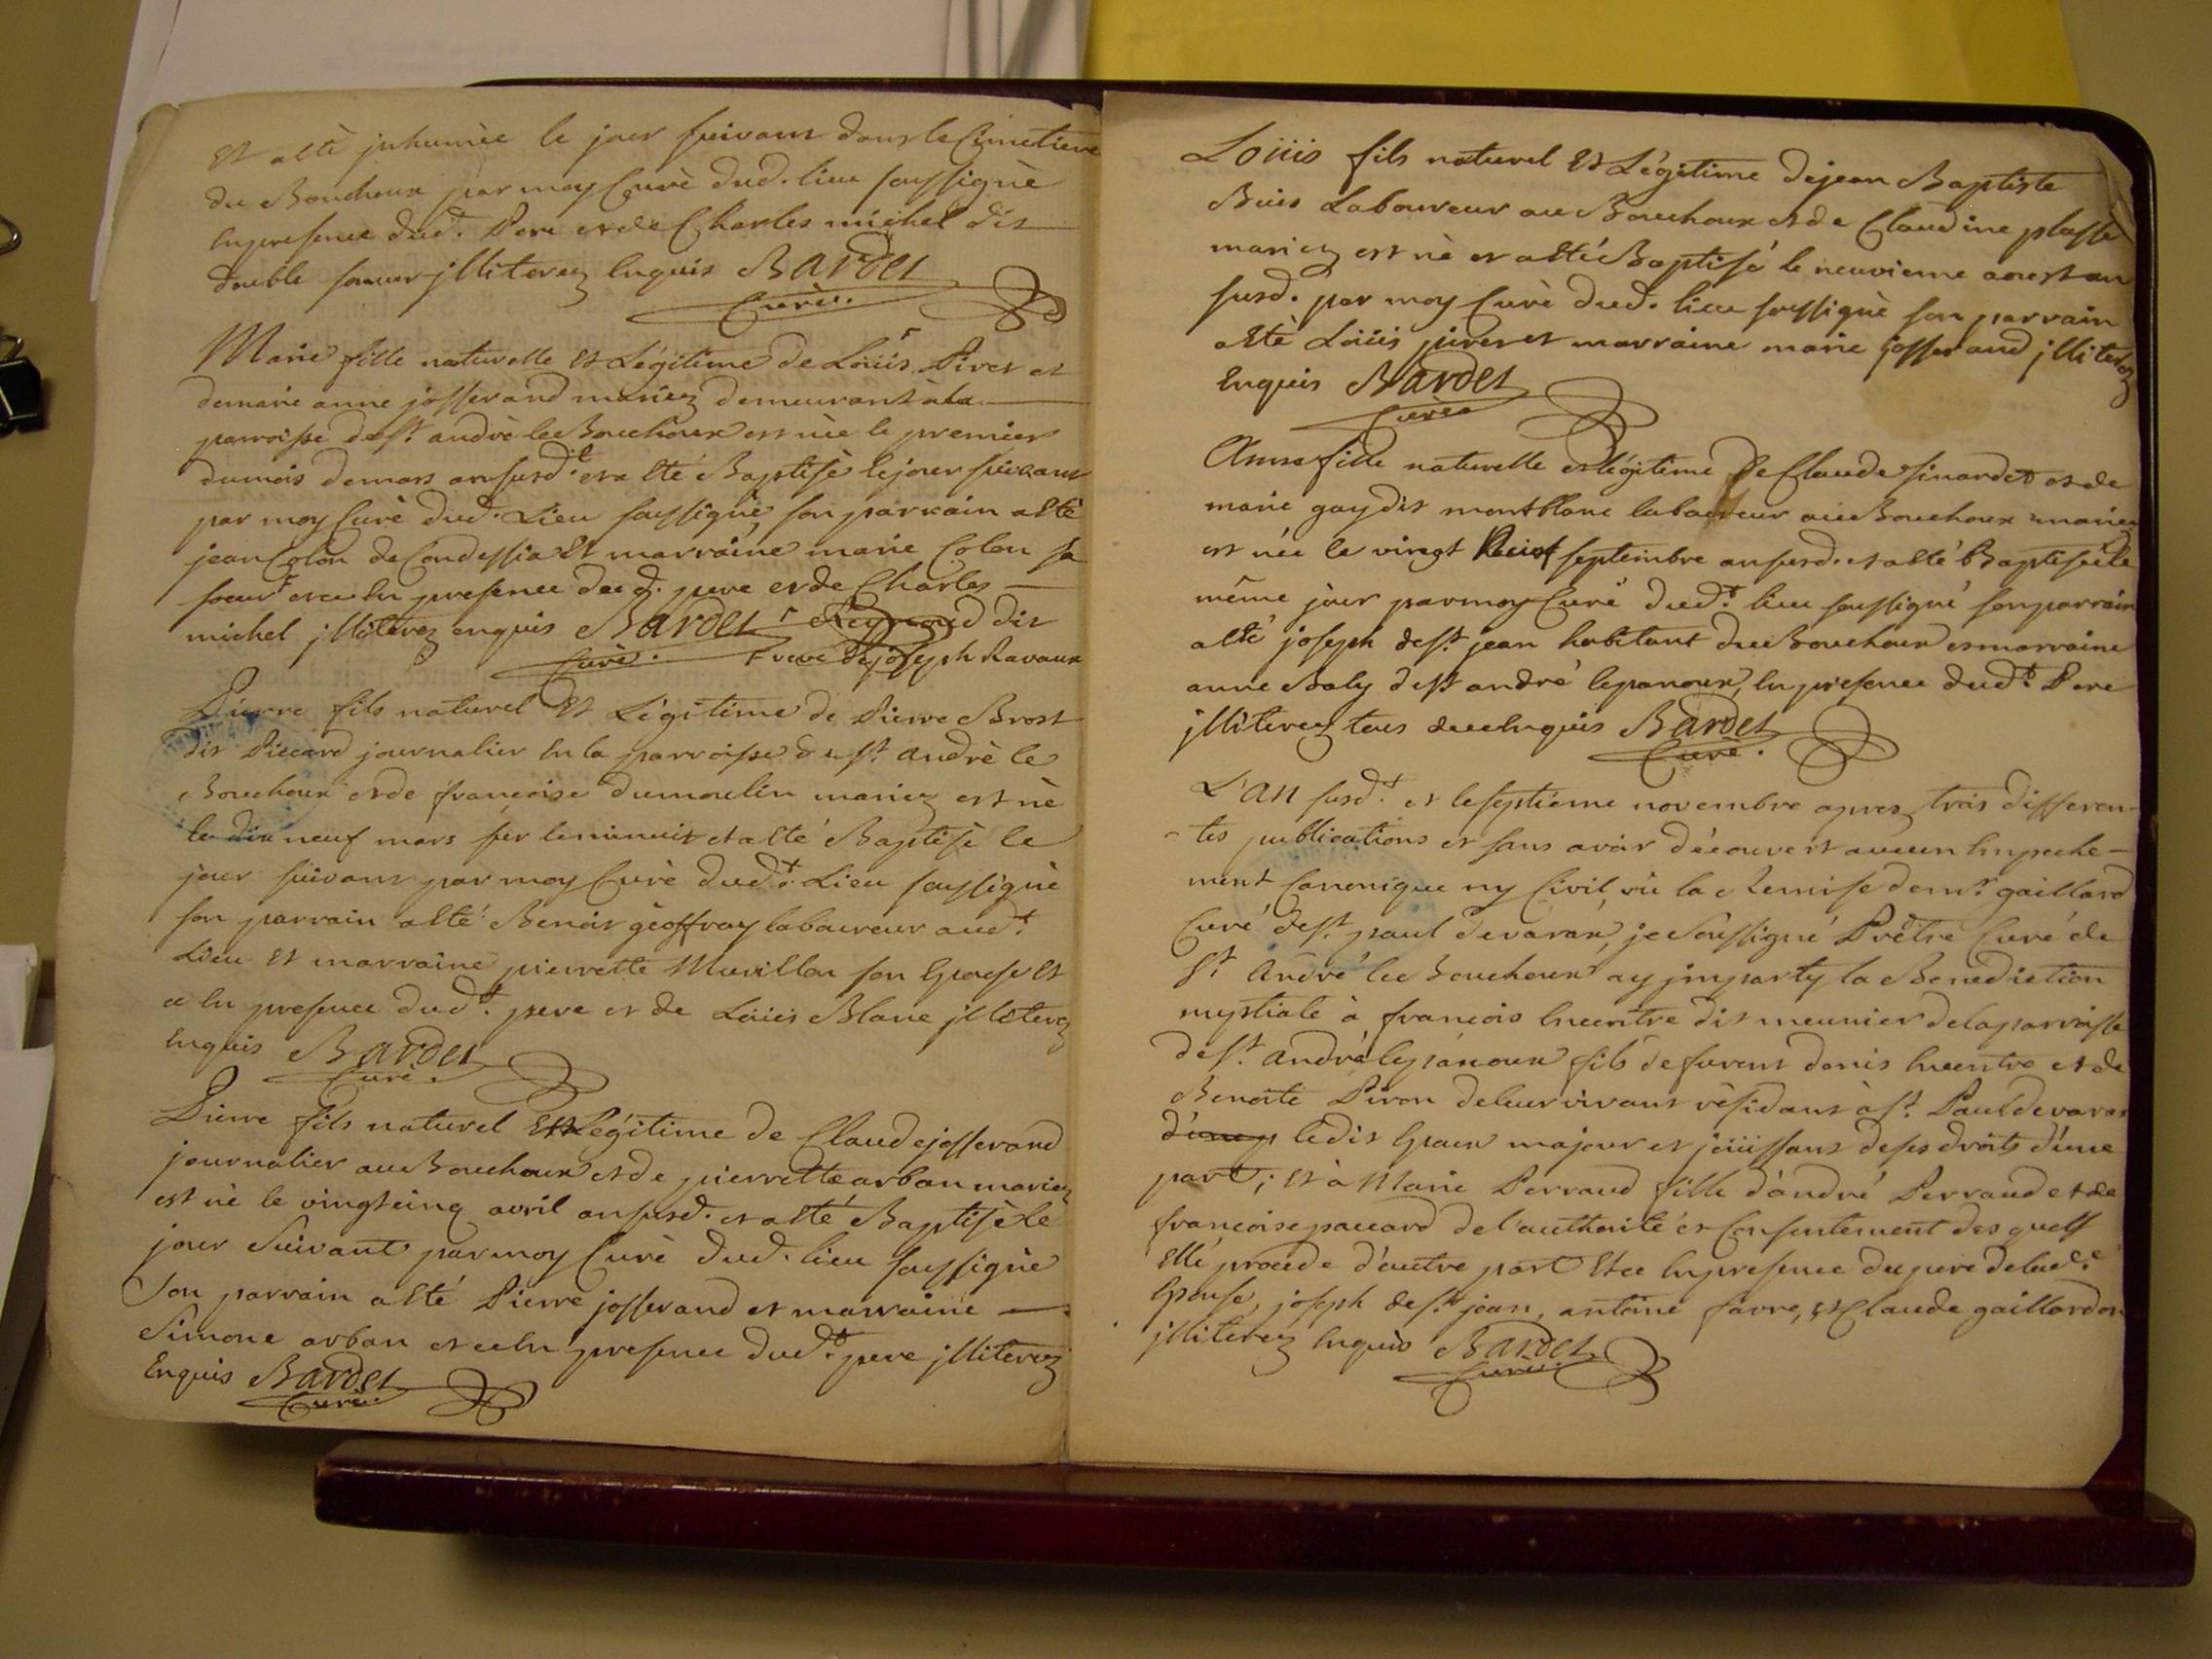 Et a etè jnhumèe le jour suivant dans le Cimetiere
du Bouchoux par moy Curè dud. lieu soussignè
En presence dud. Pere et de Charles michel dit
double soeur jlliterez Enquis Bardet
Curè.
Marie fille naturelle Et Légitime de Loüis Pivet et
de marie anne josserand mariez demeurant à la
parroisse de st. andrè le Bouchoux est nèe le premier
du mois de mars an susd.t et a eté Baptisè le jour suivant
par moy Curè dud. Lieu soussignè, son parrain a etè
jean Colon de Condessiat Et marraine marie Colon sa
soeur et ce En presence dud. pere et de Charles
michel jlliterez enquis Bardet Reymond dit
Curè. frere de joseph Ravaux
Pierre fils naturel Et Légitime de Pierre Brost
dit Piccard journalier En la parroisse de st. andrè le
Bouchoux et de françoise dumoulin mariez est nè
le dix neuf mars sur le minuit et a eté Baptisè le
jour suivant par moy Curè dud.t Lieu soussignè
son parrain a eté Benoit geoffray laboureur aud.t
Lieu Et marraine pierrette Muvillon son Epouse Et
ce En presence dud.t pere et de Loüis Blanc jlliterez
Enquis Bardet
Curè.
Pierre fils naturel Et Légitime de Claude josserand
journalier au Bouchoux et de pierrette arban mariez
est nè le vingt cinq avril an susd. et a eté Baptisè le
jour Suivant par moy Curè dud. lieu soussignè
Son parrain a eté Pierre josserand et marraine
Simone arban et ce En presence dud.t pere jlliterez
Enquis Bardet
Curè.
Loüis fils naturel Et Légitime de jean Baptiste
Buis Laboureur au Bouchoux et de Claudine plasse
mariez est nè et a eté Baptisé le neuvieme aoust an
susd. par moy Curè dud. lieu soussignè son parrain
a etè Loüis pivet et marraine marie josserand jlliterez
Enquis Bardet
Curè
Anne fille naturelle et légitime De Claude sinardet et de
marie gay dit montblanc laboureur au Bouchoux mariez
est née le vingt septembre an susd. et a eté Baptisée le
même jour par moy Curé dud.t lieu soussigné son parrain
a eté joseph de st jean habitant du Bouchoux et marraine
anne Baly de st andré le panoux, En presence dud.t Pere
jlliterez tous deux Enquis Bardet
Curé.
L'an susd.t et le septieme novembre apres trois differen-
tes publications et sans avoir découvert aucun Empeche-
ment Canonique ny Civil, vù la Remise de mr. gaillard
Curé de st. paul de varax, je Soussigné Prêtre Curé de
St. André le Bouchoux ay jmparty la Benediction
nuptiale à françois dit meunier de la parroisse
de st. André le panoux fils de furent denis et de
Benoite Piron de leur vivant résidant à st. Paul de varax
d'une ledit Epoux majeur et joüissant de ses droits d'une
part; Et à Marie Perraud fille d'andré Perraud et de
françoise paccard de l'authorité et Consentement des quels
Elle procéde d'autre part Et ce En presence du pere de lad.e
Epouse, joseph de st jean, antoine favre, et Claude gaillardon
jlliterez Enquis Bardet
Curé.